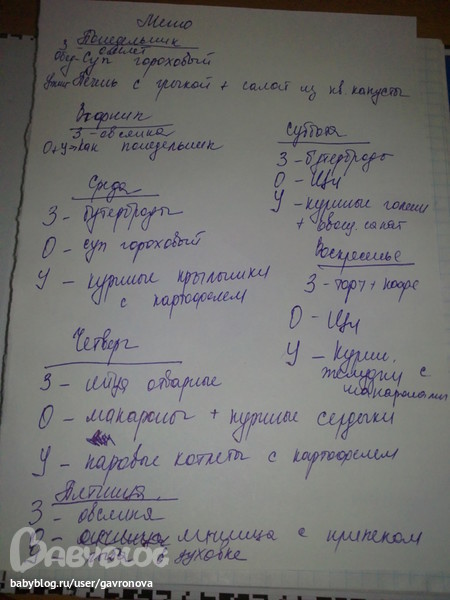 Меню
Понедельник
З - омлет
Обу - Суп гороховый
Ужин - Печень с гречкой + салат из кв капусты
Вторник
З - овсянка
О + У = как понедельник
Среда
З - бутерброды
О - суп гороховый
У - куриные крылышки
с картофелем
Четверг
З - яйца отварные
О - макароны + куриные сердечки
У - паровые котлеты с картофелем
Пятница
З - овсянка
О - яичница с
в духовке
Суббота
З - бутерброды
О - Щи
У - куриные голени
+ овощ. салат
Воскресенье
З - торт + кофе
О - Щи
У - Курин.
желудки с
макаронами
BABYBLOG
babyblog.ru/user/gavronova